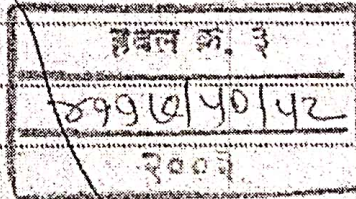 हवल क्र. ३
४११७/५०/५२
२००३